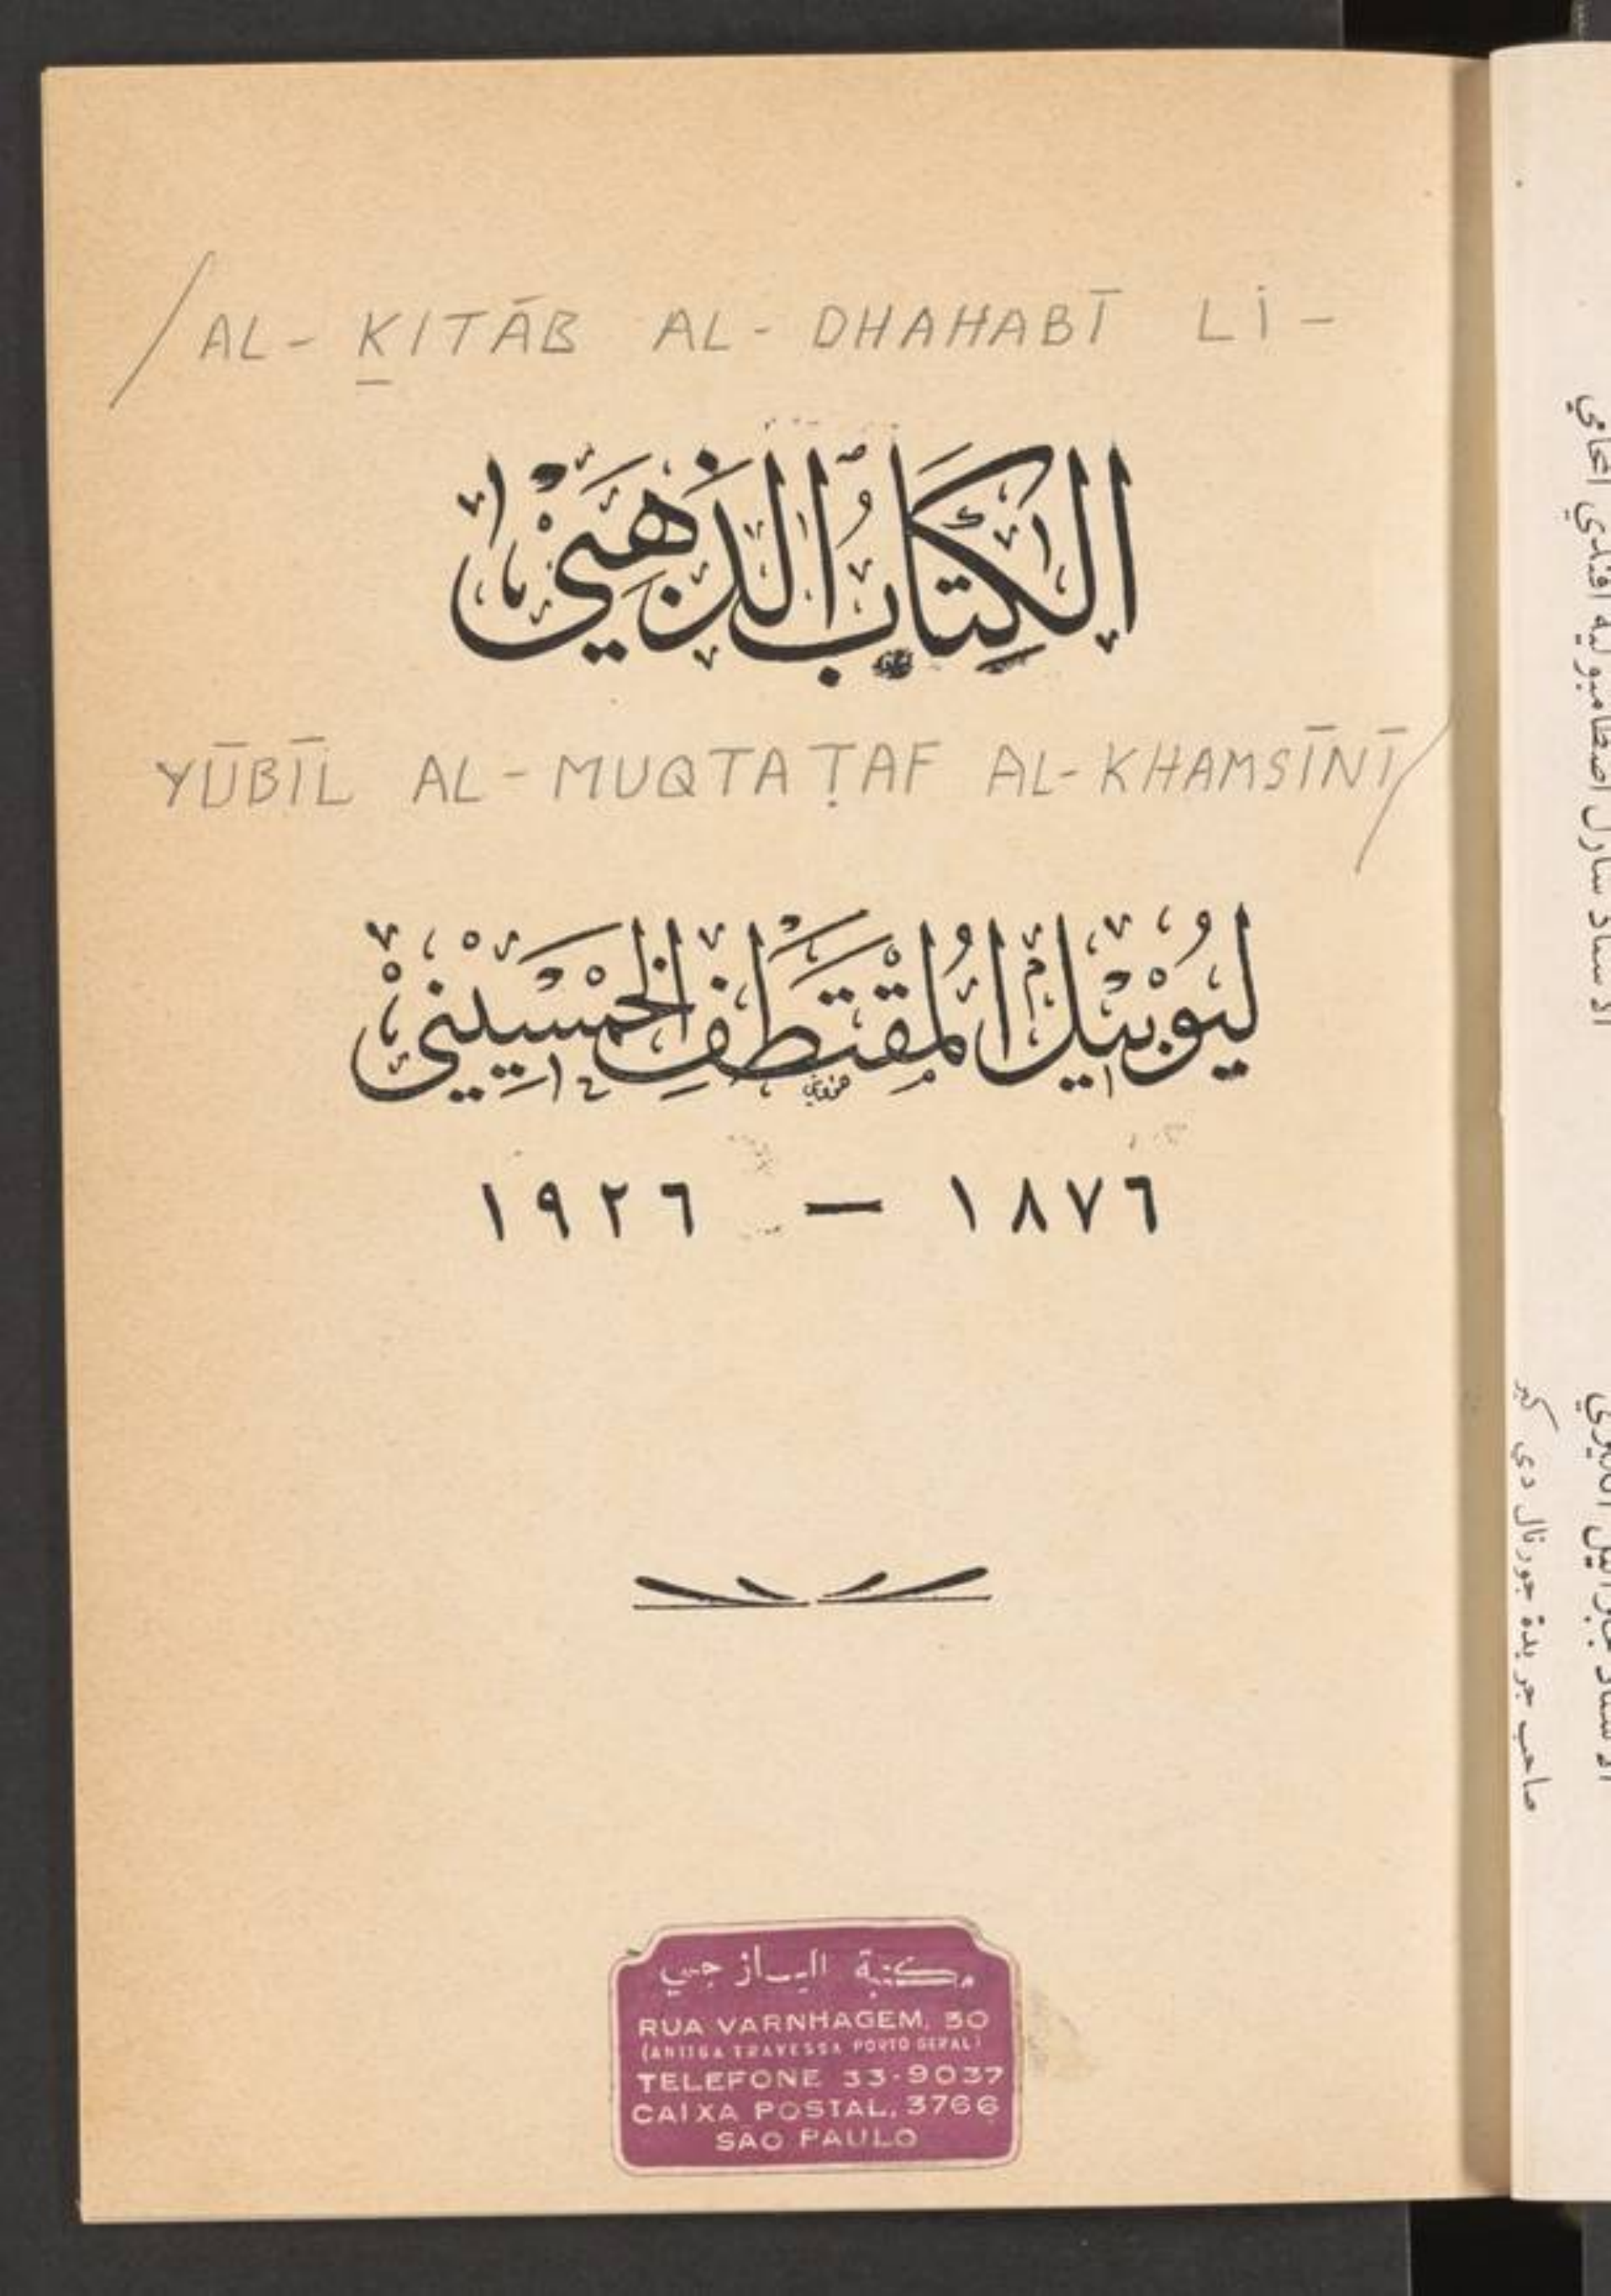 /AL-KITĀB AL-DHAHABĪ LI-
الكتاب الذهبي
YŪBĪL AL-MUQTAṬAF AL-KHAMSĪNĪ/
ليوبيل المقتطف الخمسيني
١٨٧٦ — ١٩٢٦
مكتبة اليازجي
RUA VARNHAGEM, 30
(ANTIGA TRAVESSA PORTO GERAL)
TELEFONE 33-9037
CAIXA POSTAL, 3766
SAO PAULO
صاحب جريدة جورنال دي كير